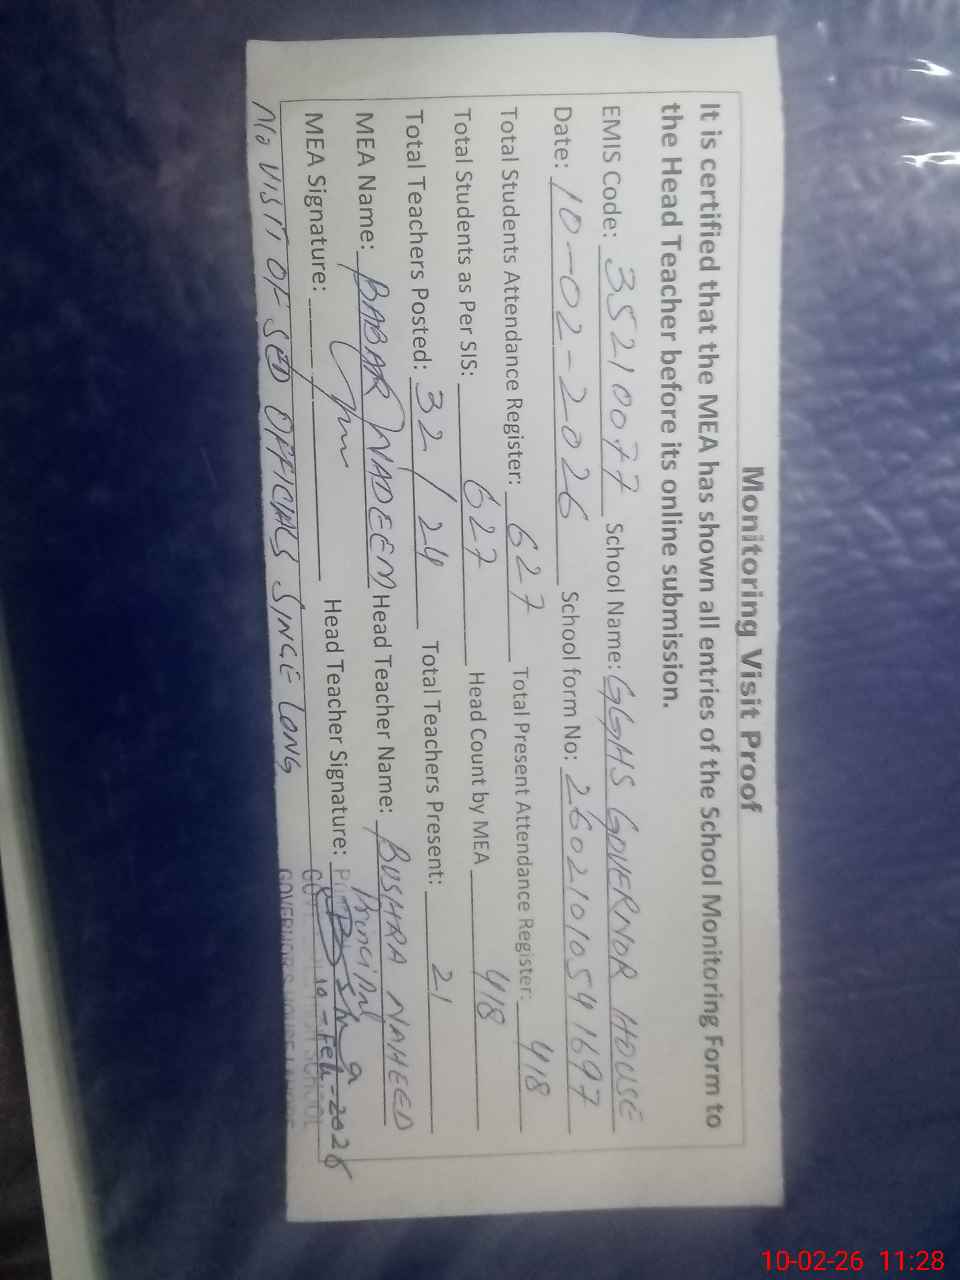 Monitoring Visit Proof
It is certified that the MEA has shown all entries of the School Monitoring Form to
the Head Teacher before its online submission.
EMIS Code: 35210077 School Name: GGHS GOVERNOR HOUSE
Date: 10-02-2026 School form No: 26021010541697
Total Students Attendance Register: 627 Total Present Attendance Register: 418
Total Students as Per SIS: 627 Head Count by MEA 418
Total Teachers Posted: 32/24 Total Teachers Present: 21
MEA Name: BABAR NADEEM Head Teacher Name: BUSHRA NAHEED
MEA Signature: Head Teacher Signature:
Principal
10-Feb-2026
NO VISIT OF SED OFFICIALS SINCE LONG
10-02-26 11:28